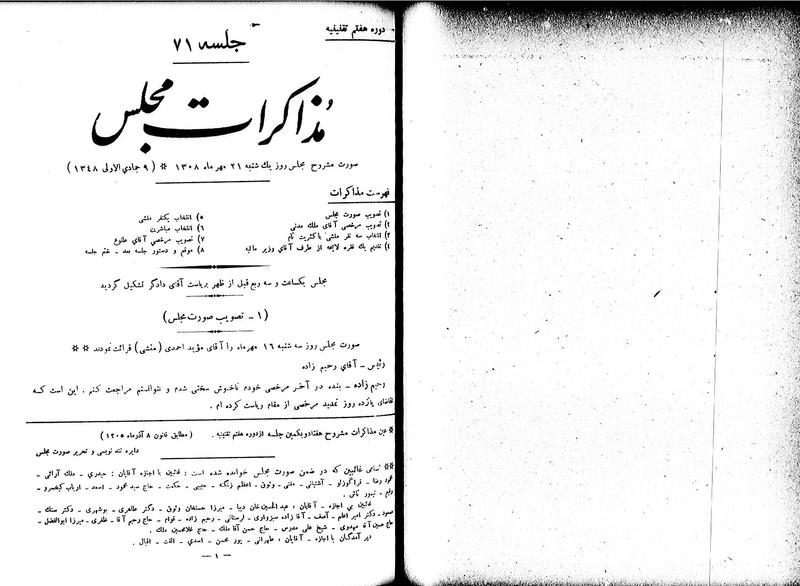 دوره هفتم تقنینیه
جلسه ۷۱
مذاکرات مجلس
صورت مشروح مجلس روز یك شنبه ۲۱ مهر ماه ۱۳۰۸ * (۹ جمادی الاولی ۱۳۴۸)
فهرست مذاکرات
۱) تصویب صورت مجلس
۲) تصویب مرخصی آقای ملك مدنی
۳) انتخاب سه نفر منشی باکثریت تام
۴) تقدیم یك فقره لایحه از طرف آقای وزیر مالیه
۵) انتخاب یکنفر منشی
۶) انتخاب مباشرین
۷) تصویب مرخصی آقای طلوع
۸) موقع و دستور جلسه بعد - ختم جلسه
مجلس یکساعت و سه ربع قبل از ظهر بریاست آقای دادگر تشکیل گردید
(۱ - تصویب صورت مجلس)
صورت مجلس روز سه شنبه ۱۶ مهر ماه را آقای مؤید احمدی (منشی) قرائت نمودند **
رئیس - آقای رحیم زاده
رحیم زاده - بنده در آخر مرخصی خودم ناخوش سختی شدم و نتوانستم مراجعت کنم . این است که
تقاضای پانزده روز تمدید مرخصی از مقام ریاست کرده ام .
* عین مذاکرات مشروح هفتاد ویکمین جلسه از دوره هفتم تقنینیه . (مطابق قانون ۸ آذر ماه ۱۳۰۵)
دایره تند نویسی و تحریر صورت مجلس
** اسامی غائبین که در ضمن صورت مجلس خوانده شده است : غائبین با اجازه آقایان : حیدری - ملك آرائی -
محمود رضا - قراگوزلو - آشتیانی - مفتی - وثوق - اعظم زنگنه - حبیبی - حکمت - حاج سید محمود - اسعد - ارباب کیخسرو -
تیمور تاش .
غائبین بی اجازه - آقایان : عبدالحسین خان دیبا - میرزا حسنخان وثوق - دکتر طاهری - بوشهری - دکتر سنك -
دکتر امیر اعلم - آصف - آقا زاده سبزواری - لرستانی - رحیم زاده - قوام - حاج رحیم آقا - ظفری - میرزا ابوالفضل -
حاج حسین آقا مهدوی - شیخ علی مدرس - حاج حسن آقا ملك - حاج غلامحسین ملك .
دیر آمدگان با اجازه - آقایان : طهرانی - پور محسن - اسدی - الفت - اقبال .
— ۱ —